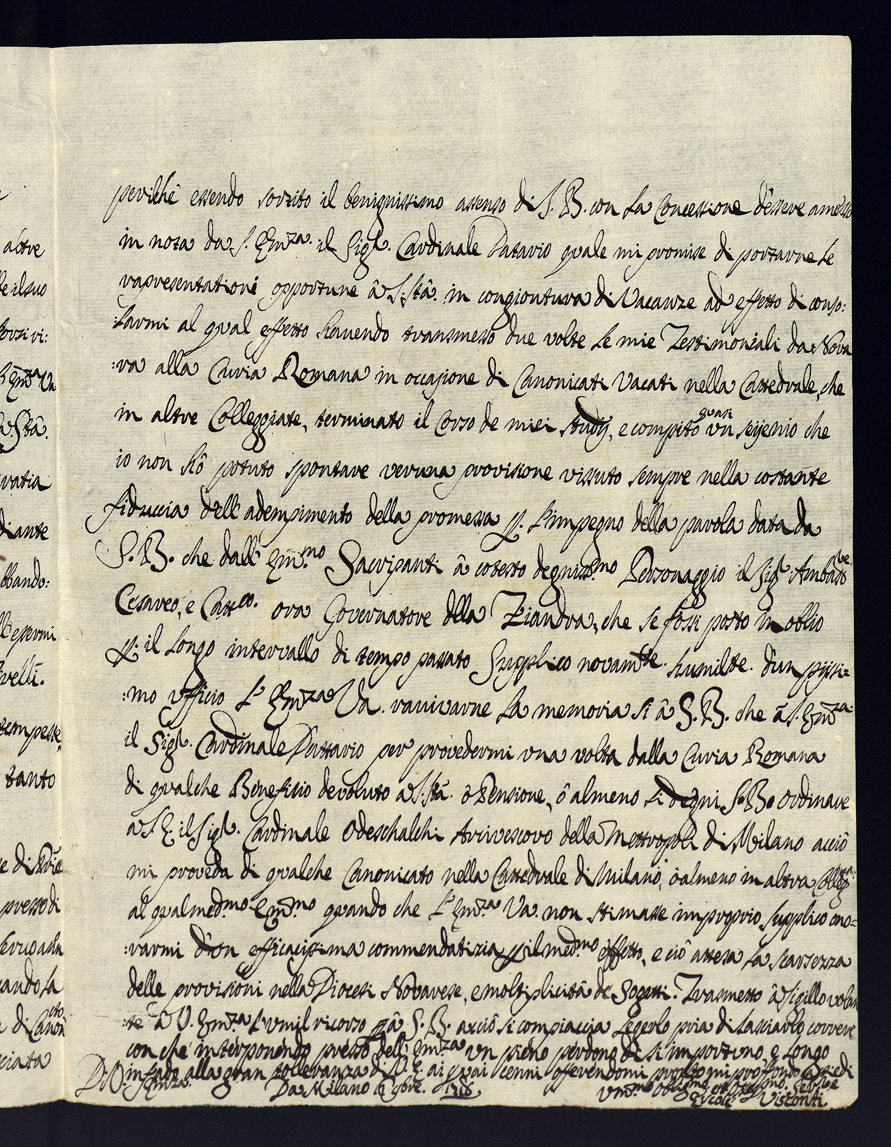 perilchè essendo sortito il benignissimo assenso di S. B. con la Concessione d'essere amesso
in nota da S. Emza. il Sigr. Cardinale Datario quale mi promise di portarne le
rapresentationi opportune à S. Stà. in congiontura di Vacanze ad effetto di conso:
:larmi al qual effetto havendo transmesso due volte le mie Testimoniali da Nova
:ra alla Curia Romana in occasione di Canonicati Vacati nella Cattedrale, che
in altre Colleggiate, terminato il Corso de miei studij, e compito quasi un sejenio che
io non hò potuto spontare veruna provisione vissuto sempre nella costante
fiduccia dell'adempimento della promessa p. l'impegno della parola data da
S. B. che dall' Emmo. Sacripanti à cotesto degnissmo Personaggio il Sigr Ambascre
Cesareo, e Cattco. ora Governatore della Fiandra, che se fosse posto in oblio
p. il longo intervallo di tempo passato Supplico novamte. humilte. d'un pijssi=
:mo Ufficio L' Emza Va. ravivarne la memoria sì à S. B. che à S. Emza
il Sigr. Cardinale Dattario per provedermi una volta dalla Curia Romana
di qualche Beneficio devoluto à S. Stà. ò Pensione, ò almeno si degni S. B. ordinare
à S. E. il Sigr. Cardinale Odeschalchi Arcivescovo della Mettropoli di Milano acciò
mi proveda di qualche Canonicato nella Cattedrale di Milano, ò almeno in altra Collegta:
al qual medmo Emmo quando che L' Emza Va non stimasse improprio, supplico ono=
:rarmi d'un efficacissima commendatizia p il medmo effetto, e ciò attesa la scarsezza
delle provisioni nella Diocesi Novarese, e moltiplicità de Sogetti. Trasmetto à sigillo volan
:te à V. Emza L'umil ricorso p à S. B. acciò si compiaccia Legerlo pria di lasciarlo correre
con che interponendo presso dell' Emza un pieno perdono di sì importuno, e longo
infado alla gran tolleranza di V. E. ai quai cenni offerendomi molto mi profondo à piedi
D. V. Emza. Da Milano li 9bre. 1718. Umilmo Servre
Ercole Visconti